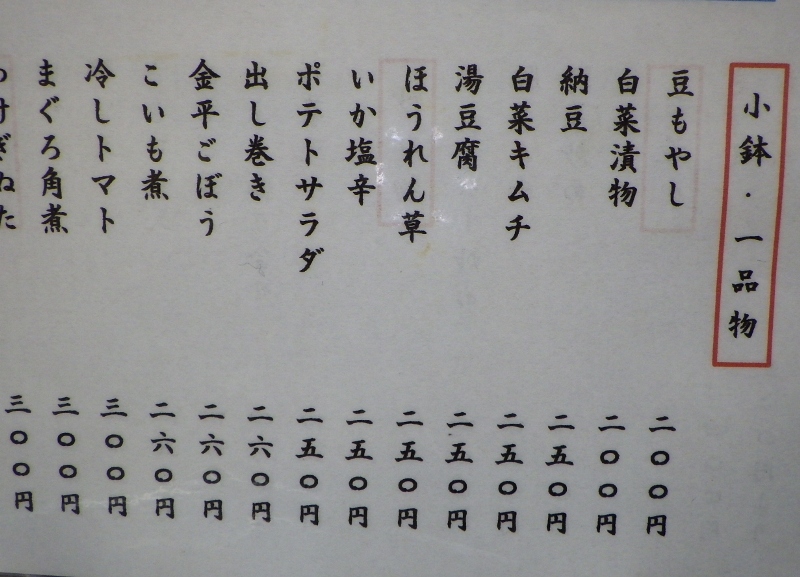 小鉢・一品物
豆もやし 二〇〇円
白菜漬物 二〇〇円
納豆 二五〇円
白菜キムチ 二五〇円
湯豆腐 二五〇円
ほうれん草 二五〇円
いか塩辛 二五〇円
ポテトサラダ 二五〇円
出し巻き 二六〇円
金平ごぼう 二六〇円
こいも煮 二六〇円
冷しトマト 三〇〇円
まぐろ角煮 三〇〇円
わけぎぬた 三〇〇円